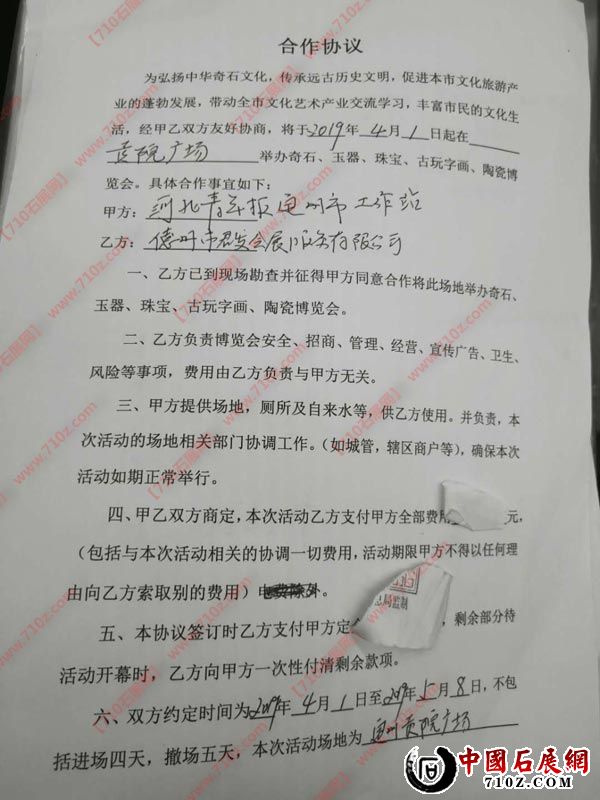 合作协议
为弘扬中华奇石文化，传承远古历史文明，促进本市文化旅游产
业的蓬勃发展，带动全市文化艺术产业交流学习，丰富市民的文化生
活，经甲乙双方友好协商，将于2019年4月1日起在
贡院广场 举办奇石、玉器、珠宝、古玩字画、陶瓷博
览会。具体合作事宜如下：
甲方：河北青年报定州市工作站
乙方：德州市君发会展服务有限公司
一、乙方已到现场勘查并征得甲方同意合作将此场地举办奇石、
玉器、珠宝、古玩字画、陶瓷博览会。
二、乙方负责博览会安全、招商、管理、经营、宣传广告、卫生、
风险等事项，费用由乙方负责与甲方无关。
三、甲方提供场地，厕所及自来水等，供乙方使用。并负责，本
次活动的场地相关部门协调工作。（如城管，辖区商户等），确保本次
活动如期正常举行。
四、甲乙双方商定，本次活动乙方支付甲方全部费 元，
（包括与本次活动相关的协调一切费用，活动期限甲方不得以任何理
由向乙方索取别的费用）电费除外。
总局监制
五、本协议签订时乙方支付甲方定 ，剩余部分待
活动开幕时，乙方向甲方一次性付清剩余款项。
六、双方约定时间为2019年4月1日至2019年5月8日，不包
括进场四天，撤场五天，本次活动场地为定州贡院广场
【710石展网】www.710z.com
中國石展網
710Z.COM